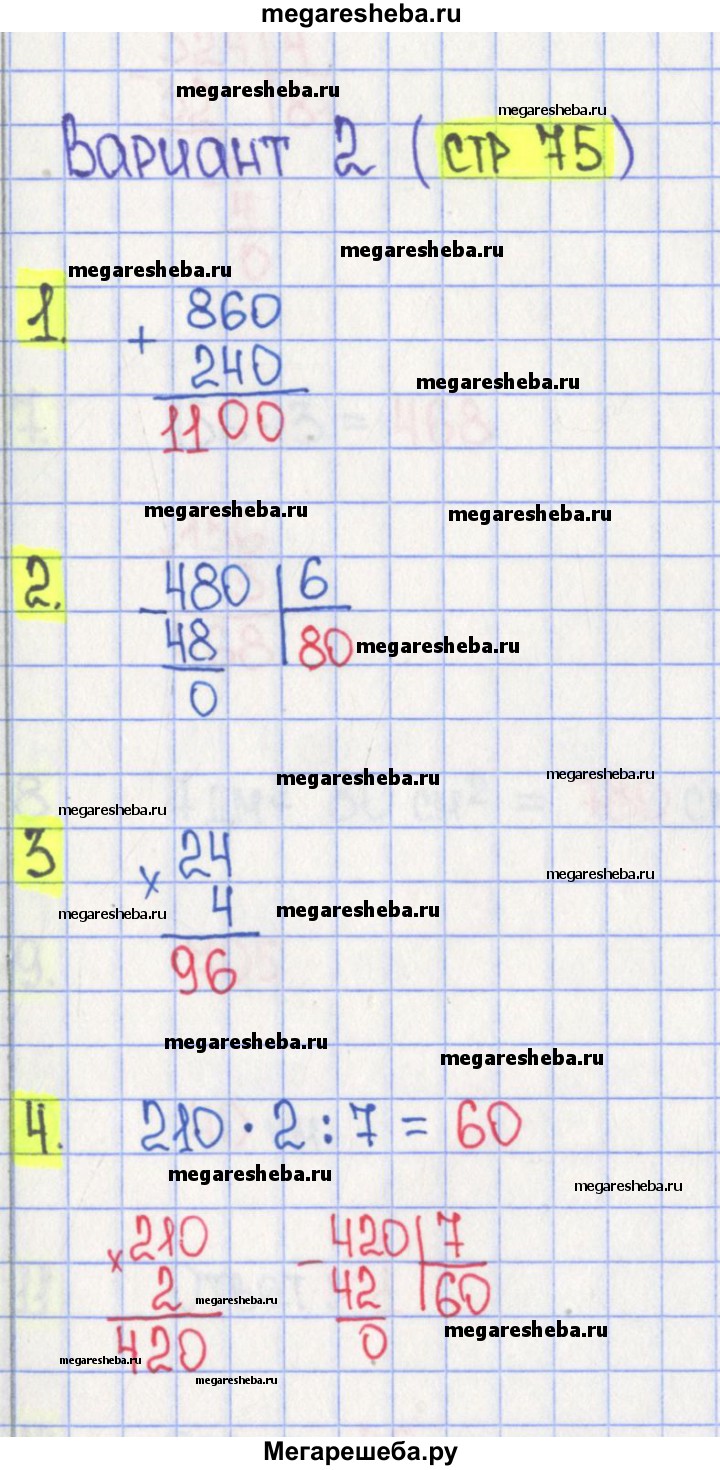 megaresheba.ru
megaresheba.ru
megaresheba.ru
Вариант 2 (стр 75)
megaresheba.ru
megaresheba.ru
1. + 860
240
megaresheba.ru
1100
megaresheba.ru
megaresheba.ru
2. - 480 | 6
48 | 80 megaresheba.ru
0
megaresheba.ru
megaresheba.ru
megaresheba.ru
3 x 24
megaresheba.ru
4
megaresheba.ru
megaresheba.ru
96
megaresheba.ru
megaresheba.ru
4. 210 · 2 : 7 = 60
megaresheba.ru
megaresheba.ru
x 210 - 420 | 7
2 megaresheba.ru 42 | 60
420 0 megaresheba.ru
megaresheba.ru
megaresheba.ru
Мегарешеба.ру